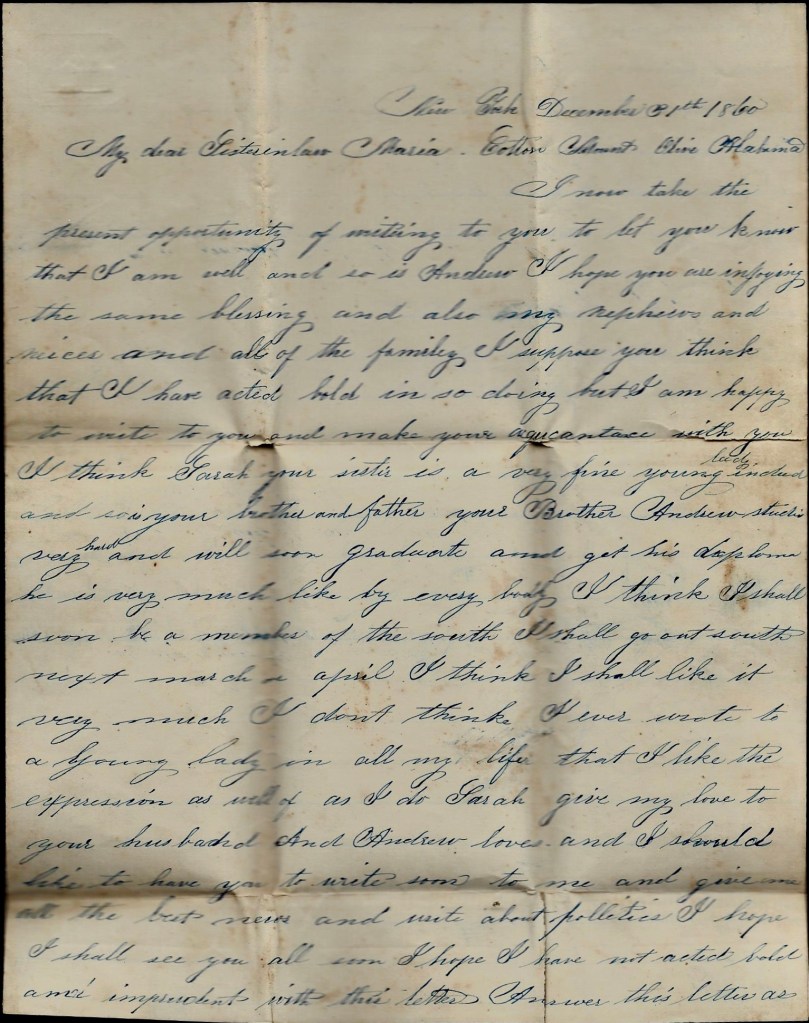 New York December 31th 1860
My dear Sisterinlaw Maria. Cotton Mount Olive Alabama
I now take the
present opportunity of writing to you to let you know
that I am well and so is Andrew I hope you are injoying
the same blessing and also my nephews and
neices and all of the familey I suppose you think
that I have acted bold in so doing but I am happy
to write to you and make your aqucantace with you
I think Sarah your sister is a very fine young lady indeed
and so is your brother and father your Brother Andrew studis
very hard and will soon graduate and get his diploma
he is very much like by every body I think I shall
soon be a member of the south I shall go out south
next march or april I think I shall like it
very much I dont think I ever wrote to
a young lady in all my life that I like the
expression as well of as I do Sarah give my love to
your husband And Andrew loves and I should
like to have you to write soon to me and give me
all the best news and write about polletics I hope
I shall see you all soon I hope I have not acted bold
and imprudent with this letter Answer this letter as